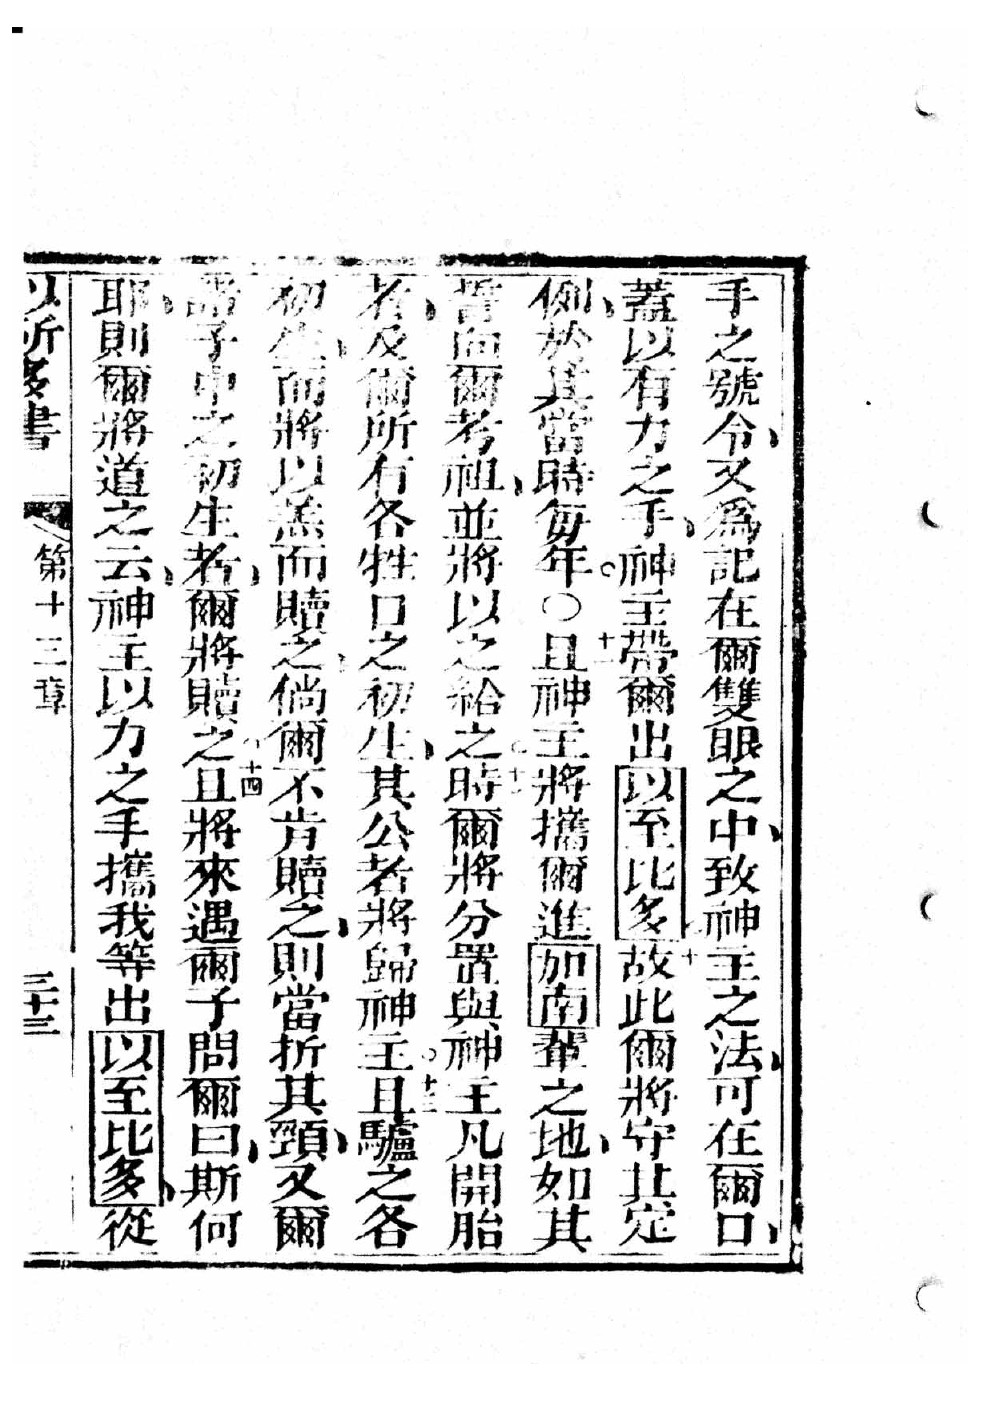 手之號令、又爲記在爾雙眼之中、致神主之法、可在爾口、
蓋以有力之手、神主帶爾出以至比多。十故此爾將守其定
例、於其當時每年。○十一且神主將攜爾進加南輩之地、如其
誓向爾考祖、並將以之給之。十二時爾將分置與神主凡開胎
者、及爾所有各牲口之初生、其公者將歸神主。十三且驢之各
初生、而將以羔而贖之、倘爾不肯贖之、則當折其頸、又爾
諸子中之初生者、爾將贖之。十四且將來遇爾子問爾曰、斯何
耶、則爾將道之云、神主以力之手攜我等出以至比多、從
以所多書 第十三章 三十三